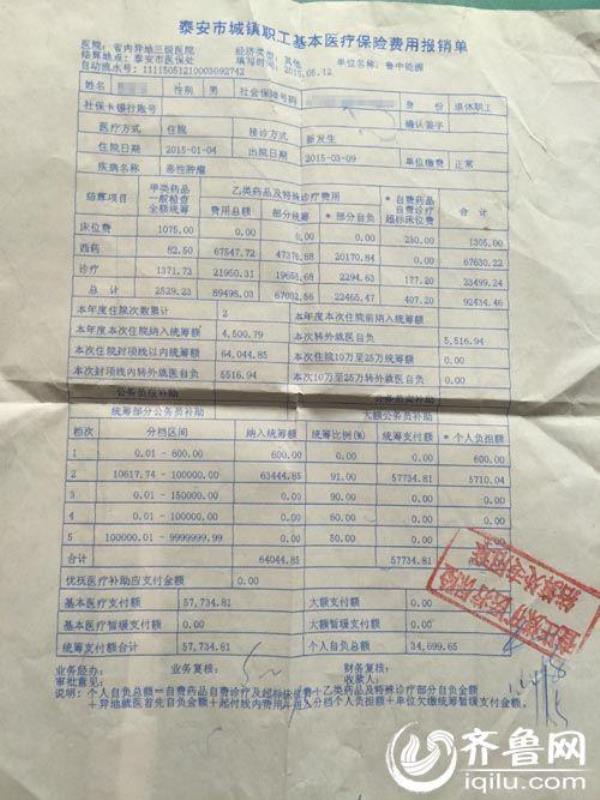 泰安市城镇职工基本医疗保险费用报销单
医院：省内异地三级医院 经济类型：其他
结算地点：泰安市医保处 填写时间：2015.05.12 单位名称：鲁中能源
自动流水号：11115051210003092742
姓名 性别 男 社会保障号码 身份 退休职工
社保卡银行账号 确认签字
医疗方式 住院 接诊方式 新发生
住院日期 2015-01-04 出院日期 2015-03-09 单位缴费 正常
疾病名称 恶性肿瘤
结算项目 甲类药品一般检查全额统筹 乙类药品及特殊诊疗费用 *自费药品自费诊疗超标床位费 合计
费用总额 部分统筹 *部分自负
床位费 1075.00 0.00 0.00 0.00 230.00 1305.00
西药 82.50 67547.72 47376.88 20170.84 0.00 67630.22
诊疗 1371.73 21950.31 19655.68 2294.63 177.20 23499.24
总计 2529.23 89498.03 67032.56 22465.47 407.20 92434.46
本年度住院次数累计 2 本年度本次住院前纳入统筹额
本年度本次住院纳入统筹额 4,500.79 本次转外就医自负 5,516.94
本次住院封顶线以内统筹额 64,044.85 本次住院10万至25万统筹额 0.00
本次封顶线内转外就医自负 5516.94 本次10万至25万转外就医自负 0.00
公务员段补助
统筹部分公务员补助 大额公务员补助
档次 分档区间 纳入统筹额 统筹比例(%) 统筹支付额 *个人负担额
1 0.01 - 600.00 600.00 0.00 600.00
2 10617.74 - 100000.00 63444.85 91.00 57734.81 5710.04
3 0.01 - 150000.00 0.00 90.00 0.00
4 0.01 - 100000.00 0.00 60.00 0.00
5 100000.01 - 9999999.99 0.00 50.00 0.00
合计 64044.85 57734.81
优抚医疗补助应支付金额 0.00
基本医疗支付额 57,734.81 大额支付额 0.00
基本医疗暂缓支付额 0.00 大额暂缓支付额 0.00
统筹支付额合计 57,734.81 个人自负总额 34,699.65
业务经办： 业务复核： 财务复核：
审批意见： 收款人：
说明：个人自负总额＝自费药品自费诊疗及超标床位费＋乙类药品及特殊诊疗部分自负金额
＋异地就医首先自负金额＋起付线内费用＋纳入分档个人负担额＋单位欠缴统筹暂缓支付金额。
齐鲁网
iqilu.com